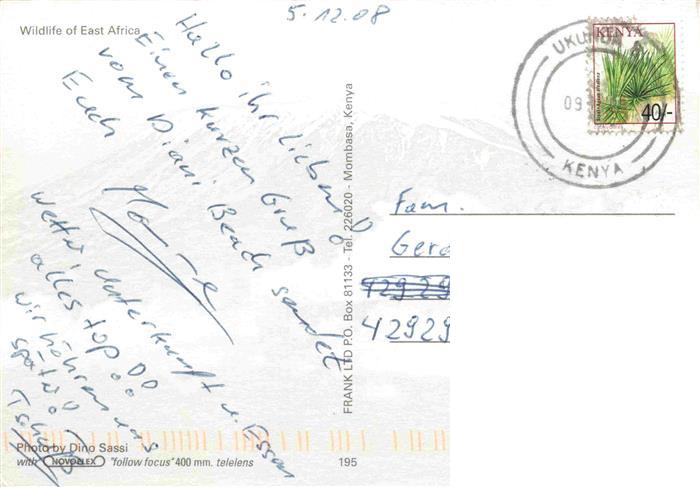 5.12.08
Wildlife of East Africa
Hallo ihr Lieben!
Einen kurzen Gruß
vom Diani Beach sendet
Euch
Wetter Unterkunft u. Essen
alles top!!
wir hören uns
später!
Photo by Dino Sassi
with NOVOFLEX "follow focus" 400 mm. telelens
195
FRANK LTD P.O. Box 81133 - Tel. 226020 - Mombasa, Kenya
KENYA
40/-
UKUNDA
09
KENYA
Fam.
Gero
42929
42929